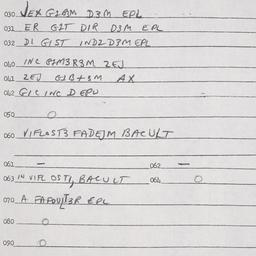 030 VEX GIAM D3M EPL
031 ER GIT DIR D3M EPL
032 DI GIST INDI D3M EPL
040 INC
041 2EJ AX
042 GIC INC D EPU
050 O
060 VIFLOST3 FADEJM BACULT
061 — 062 —
063 IN VIFL OSTI, BACULT 064 O
070 A EPL
080 O
090 O